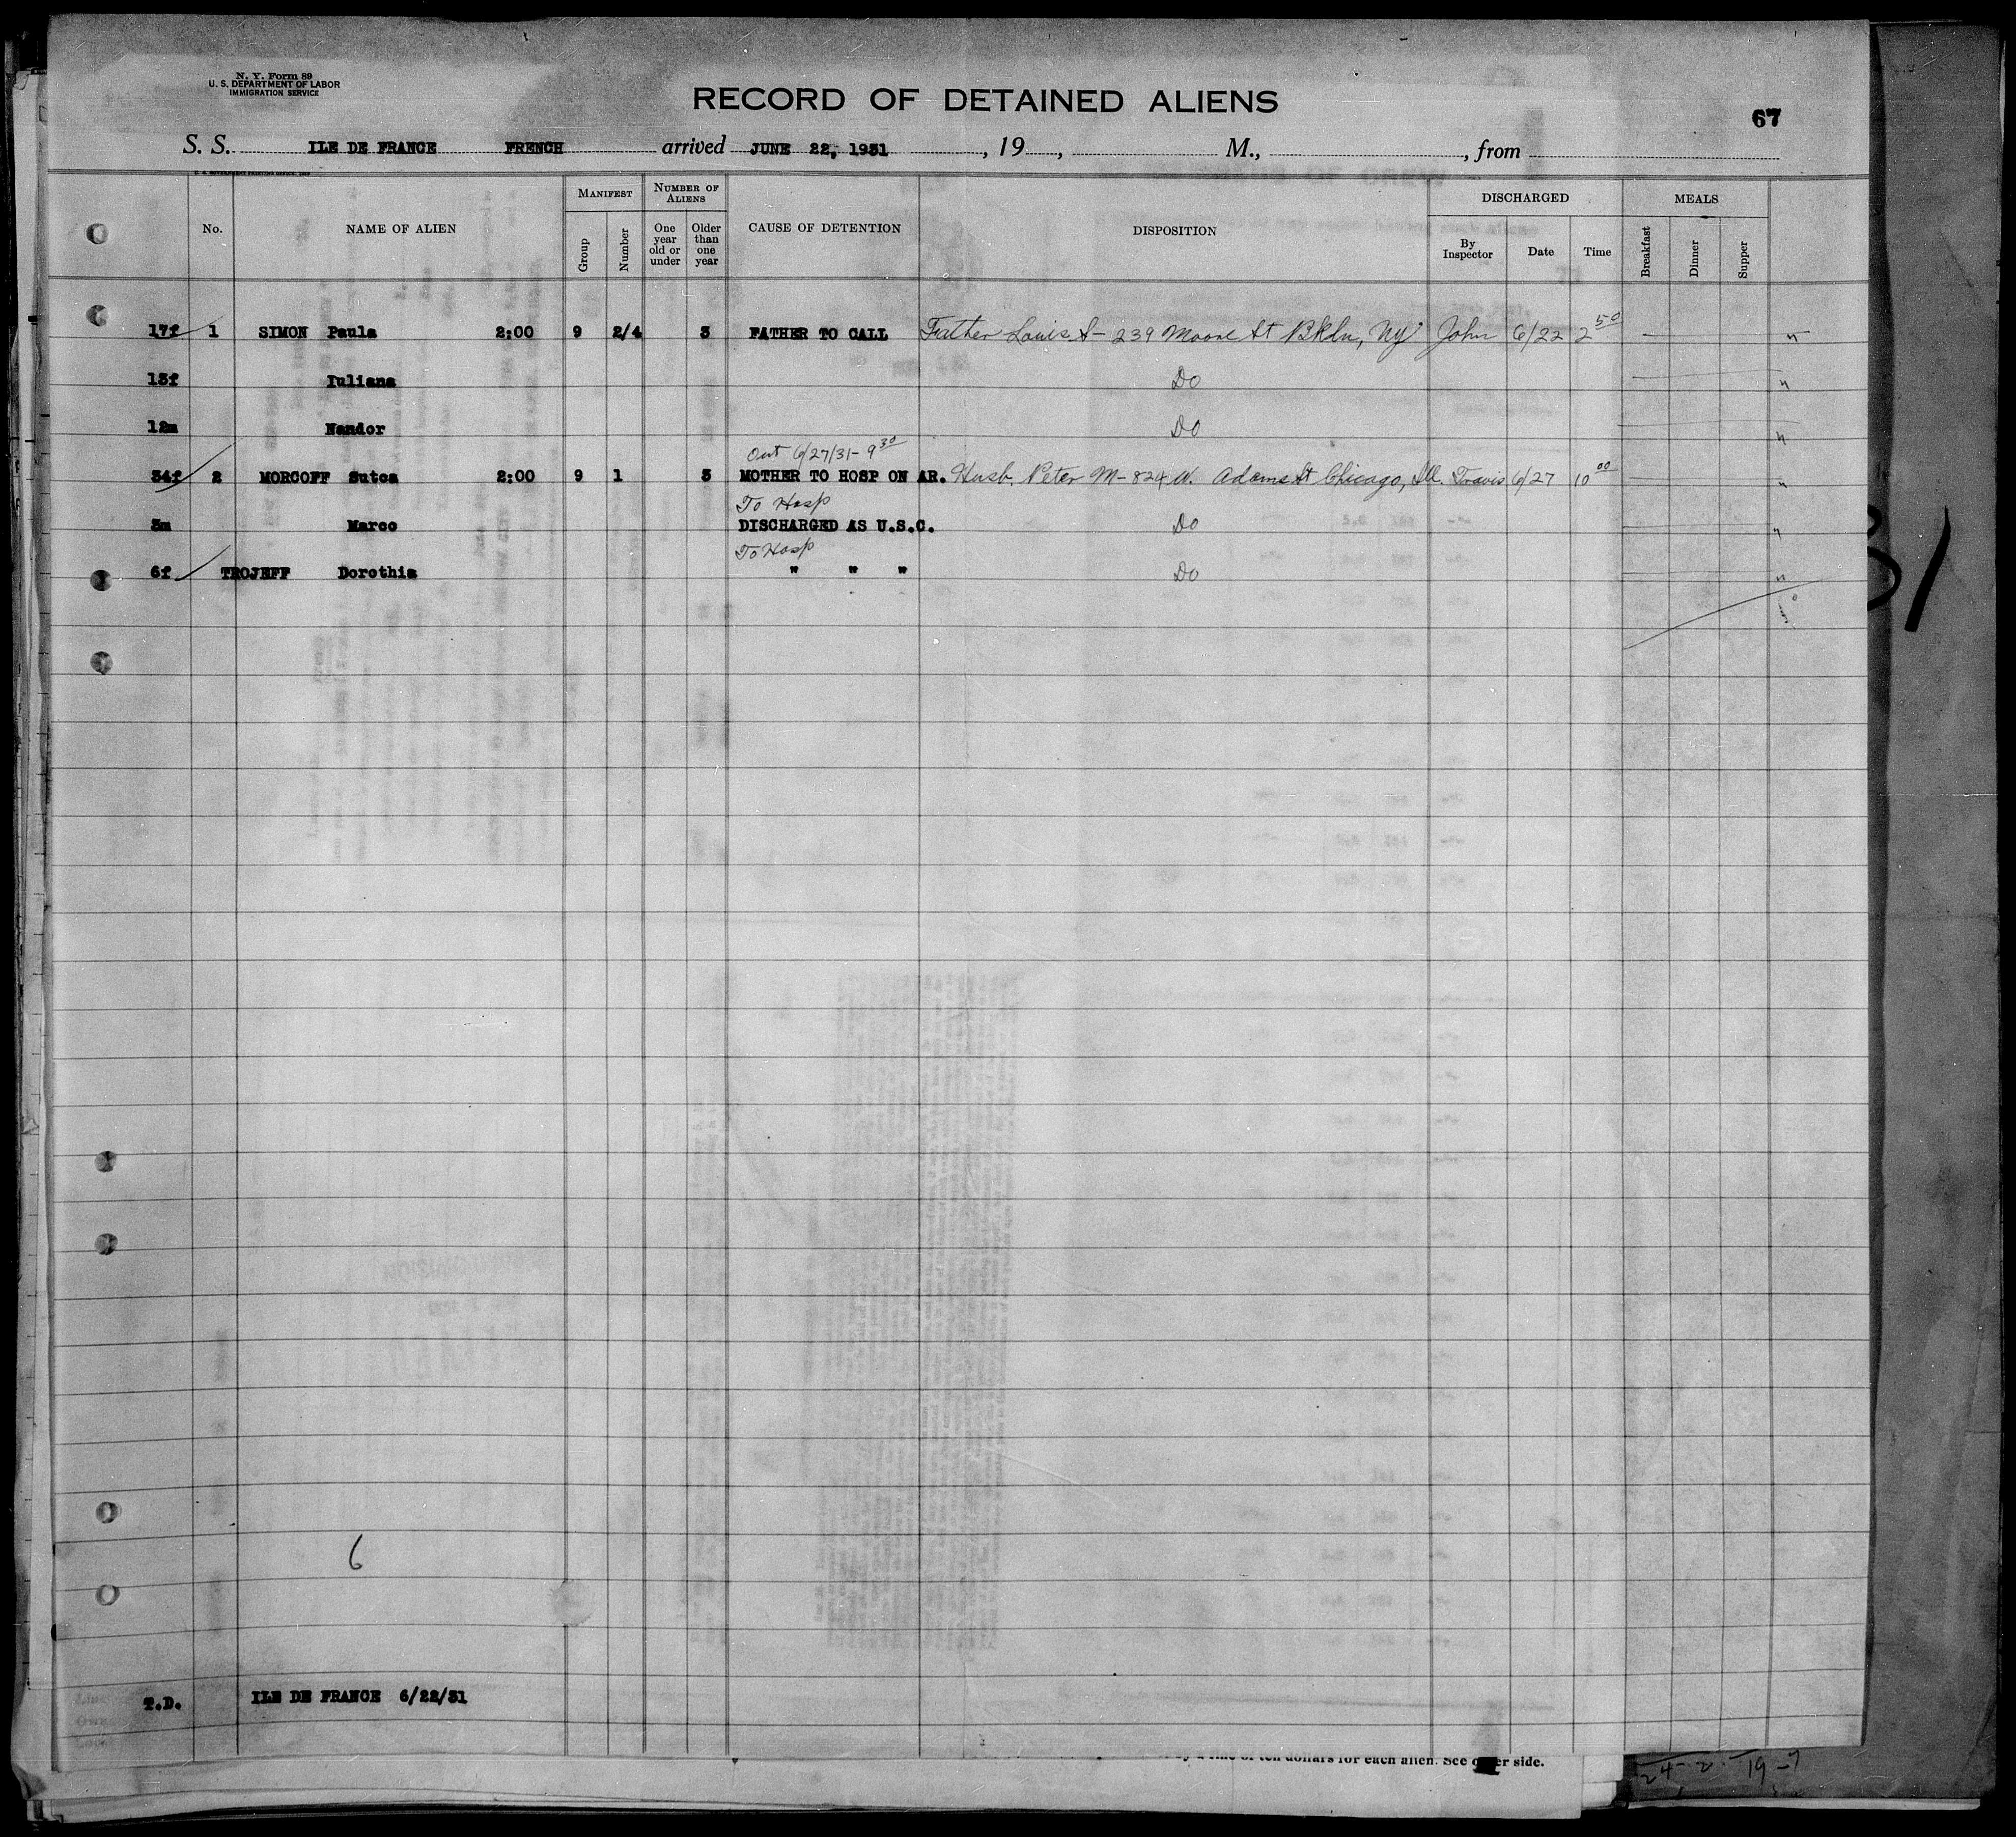 N. Y. Form 89
U. S. DEPARTMENT OF LABOR
IMMIGRATION SERVICE
RECORD OF DETAINED ALIENS
67
S. S. ILE DE FRANCE FRENCH arrived JUNE 22, 1931, 19 , M., , from
U. S. GOVERNMENT PRINTING OFFICE
No. NAME OF ALIEN MANIFEST Group Number NUMBER OF ALIENS One year old or under Older than one year CAUSE OF DETENTION DISPOSITION DISCHARGED By Inspector Date Time MEALS Breakfast Dinner Supper
17f 1 SIMON Paula 2:00 9 2/4 3 FATHER TO CALL Father Louis S - 239 Moore St Bkln, NY John 6/22 2 50 — "
13f Iuliana Do "
12m Nandor Do "
Out 6/27/31 - 9 30
34f 2 MORCOFF Sutca 2:00 9 1 3 MOTHER TO HOSP ON AR. Husb. Peter M - 824 W. Adams St Chicago, Ill. Travis 6/27 10 00 "
To Hosp
3m Marco DISCHARGED AS U.S.C. Do "
To Hosp
6f TROJEFF Dorothia " " " Do "
6
T.D. ILE DE FRANCE 6/22/31
ten dollars for each alien. See other side.
24-2 19-7